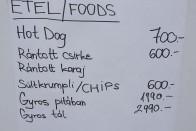 ETEL/FOODS
Hot Dog 700.-
Rántott csirke 600.-
Rántott karaj
Sültkrumpli/CHiPS 600.-
Gyros pitában 1990.-
Gyros tál 2990.-